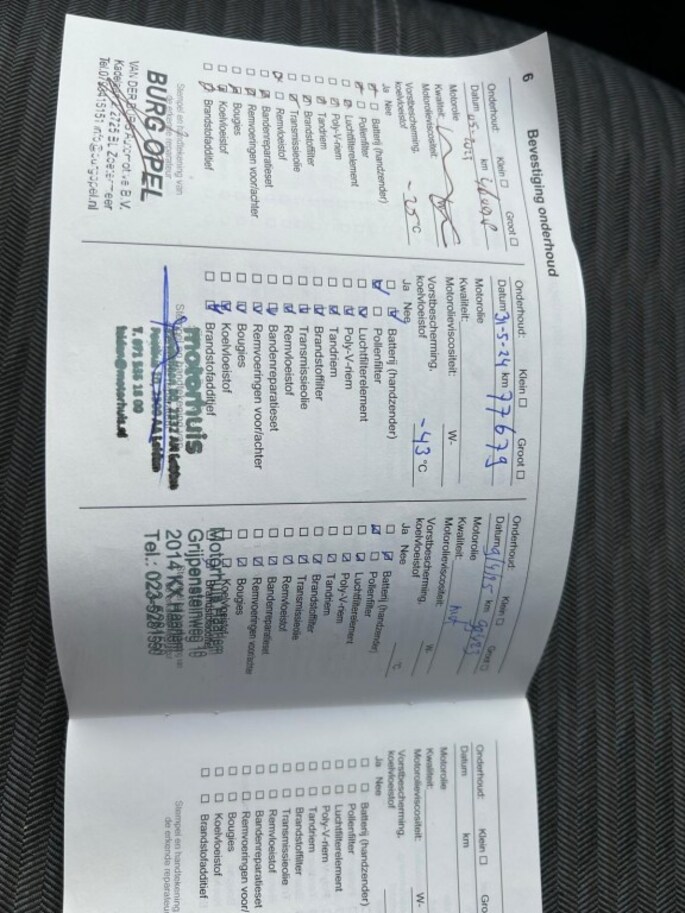 6
Bevestiging onderhoud
Onderhoud: Klein Groot
Datum km
Motorolie
Kwaliteit:
Motorolieviscositeit:
Vorstbescherming,
koelvloeistof -25 °C
Ja Nee
Batterij (handzender)
Pollenfilter
Luchtfilterelement
Poly-V-riem
Tandriem
Brandstoffilter
Transmissieolie
Remvloeistof
Bandenreparatieset
Remvoeringen voor/achter
Bougies
Koelvloeistof
Brandstofadditief
Stempel en handtekening van
de erkende reparateur
BURG OPEL
Onderhoud: Klein Groot
Datum 31-5-24 km 77679
Motorolie
Kwaliteit:
Motorolieviscositeit: W-
Vorstbescherming,
koelvloeistof -43 °C
Ja Nee
Batterij (handzender)
Pollenfilter
Luchtfilterelement
Poly-V-riem
Tandriem
Brandstoffilter
Transmissieolie
Remvloeistof
Bandenreparatieset
Remvoeringen voor/achter
Bougies
Koelvloeistof
Brandstofadditief
motorhuis
Onderhoud: Klein Groot
Datum 9/4/25 km
Motorolie
Kwaliteit:
Motorolieviscositeit: W-
Vorstbescherming,
koelvloeistof °C
Ja Nee
Batterij (handzender)
Pollenfilter
Luchtfilterelement
Poly-V-riem
Tandriem
Brandstoffilter
Transmissieolie
Remvloeistof
Bandenreparatieset
Remvoeringen voor/achter
Bougies
Koelvloeistof
Brandstofadditief
Motorhuis Haarlem
Grijpensteinweg 18
2014 KX Haarlem
Tel.: 023-5281550
Onderhoud: Klein Gro
Datum km
Motorolie
Kwaliteit:
Motorolieviscositeit: W-
Vorstbescherming,
koelvloeistof
Ja Nee
Batterij (handzender)
Pollenfilter
Luchtfilterelement
Poly-V-riem
Tandriem
Brandstoffilter
Transmissieolie
Remvloeistof
Bandenreparatieset
Remvoeringen voor/
Bougies
Koelvloeistof
Brandstofadditief
Stempel en handtekening
de erkende reparateu